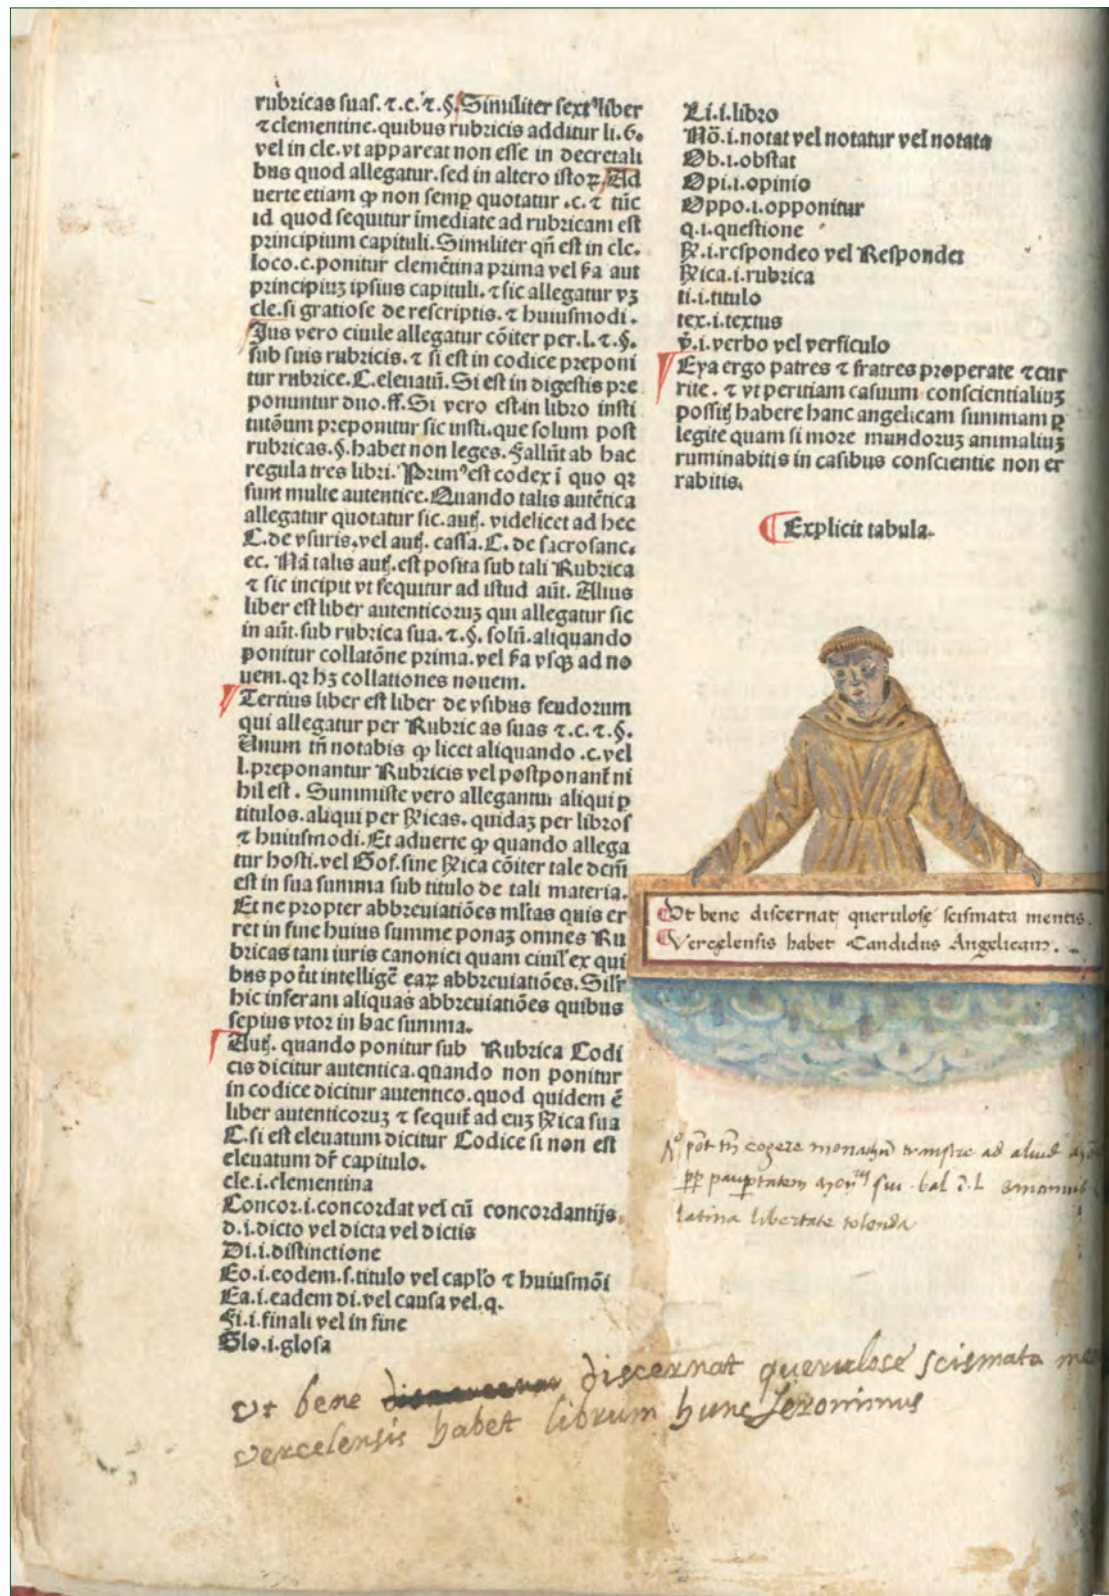 rubricas suas. ⁊.c.⁊.§. Similiter sextꝰ liber
⁊ clementine. quibus rubricis additur li.6.
vel in cle. vt appareat non esse in decretali
bus quod allegatur. sed in altero istoꝝ. Ad
uerte etiam ꝙ non semꝑ quotatur .c. ⁊ tūc
id quod sequitur īmediate ad rubricam est
principium capituli. Similiter qn̄ est in cle.
loco.c. ponitur clemētina prima vel ẜa aut
principiuꝫ ipsius capituli. ⁊ sic allegatur vꝫ
cle. si gratiose de rescriptis. ⁊ huiusmodi.
Jus vero ciuile allegatur cōiter per.l.⁊.§.
sub suis rubricis. ⁊ si est in codice preponi
tur rubrice. C. eleuatū. Si est in digestis pre
ponuntur duo. ff. Si vero est in libro insti
tutōum preponitur sic insti. que solum post
rubricas.§. habet non leges. Fallūt ab hac
regula tres libri. Primꝰ est codex ī quo qꝛ
sunt multe autentice. Quando talis autētica
allegatur quotatur sic. auꝶ. videlicet ad hec
C. de vsuris. vel auꝶ. cassa. C. de sacrosanc.
ec. Nā talis auꝶ. est posita sub tali Rubrica
⁊ sic incipit vt sequitur ad istud aūt. Alius
liber est liber autenticoruꝫ qui allegatur sic
in aūt. sub rubrica sua. ⁊.§. solū. aliquando
ponitur collatōne prima. vel ẜa vsqꝫ ad no
uem. qꝛ hꝫ collationes nouem.
Tertius liber est liber de vsibus feudorum
qui allegatur per Rubric as suas ⁊.c.⁊.§.
Unum tn̄ notabis ꝙ licet aliquando .c. vel
l. preponantur Rubricis vel postponant̄ ni
hil est. Summiste vero allegantur aliqui ꝑ
titulos. aliqui per ꝶicas. quidaꝫ per libros
⁊ huiusmodi. Et aduerte ꝙ quando allega
tur hosti. vel Gof. sine ꝶica cōiter tale dcm̄
est in sua summa sub titulo de tali materia.
Et ne propter abbreuiatiōes ml̄tas quis er
ret in fine huius summe ponaꝫ omnes Ru
bricas tam iuris canonici quam ciuil̄ ex qui
bus pot̄it intelligē̄ eaꝝ abbreuiatiōes. Silr̄
hic inferam aliquas abbreuiatiōes quibus
sepius vtor in hac summa.
Auꝶ. quando ponitur sub Rubrica Codi
cis dicitur autentica. quando non ponitur
in codice dicitur autentico. quod quidem ē
liber autenticoruꝫ ⁊ sequit̄ ad euꝫ ꝶica sua
C. si est eleuatum dicitur Codice si non est
eleuatum dr̄ capitulo.
cle.i.clementina
Concor.i.concordat vel cū concordantijs.
d.i.dicto vel dicta vel dictis
Di.i.distinctione
Eo.i.eodem.s.titulo vel caplo ⁊ huiusmōi
Ea.i.eadem di. vel causa vel.q.
Fi.i.finali vel in fine
Glo.i.glosa
Li.i.libro
Nō.i.notat vel notatur vel notata
Ob.i.obstat
Opi.i.opinio
Oppo.i.opponitur
q.i.questione
ꝶ.i.respondeo vel Respondet
ꝶica.i.rubrica
ti.i.titulo
tex.i.textus
v̄.i.verbo vel versiculo
Eya ergo patres ⁊ fratres properate ⁊ cur
rite. ⁊ vt peritiam casuum conscientialiuꝫ
possitꝭ habere hanc angelicam summam ꝑ
legite quam si more mundoruꝫ animaliuꝫ
ruminabitis in casibus conscientie non er
rabitis.
Explicit tabula.
Ut bene discernat querulose scismata mentis.
Vercelensis habet Candidus Angelicam.
pōt tn̄ cogere monachū transire ad aliud
paupertatem sui . bal
latina libertate tolenda
Vt bene discernat querulose scismata
vercelensis habet librum hunc Jeronimus